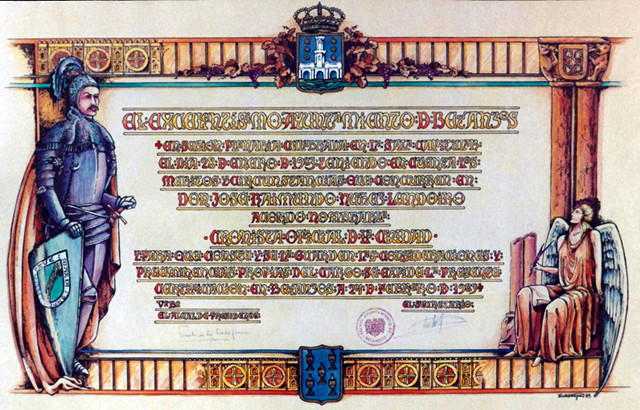 EL EXCELENTISIMO AYUNTAMIENTO D BETANZOS
EN SESION PLENARIA CELEBRADA EN LA SALA CAPITULAR
EL DIA 28 D ENERO D TENIENDO EN CUENTA LOS
MERITOS Y CIRCUNSTANCIAS QUE CONCURREN EN
DON JOSE RAIMUNDO NUÑEZ LENDOIRO
ACORDO NOMBRARLE
CRONISTA OFICIAL D LA CIUDAD
Y PARA QUE CONSTE Y SE LE GUARDEN LAS CONSIDERACIONES Y
PREEMINENCIAS PROPIAS DEL CARGO SE EXPIDE LA PRESENTE
CERTIFICACION EN BETANZOS A 24 D FEBRERO D
VºBº
EL SECRETARIO
EL ALCALDE PRESIDENTE